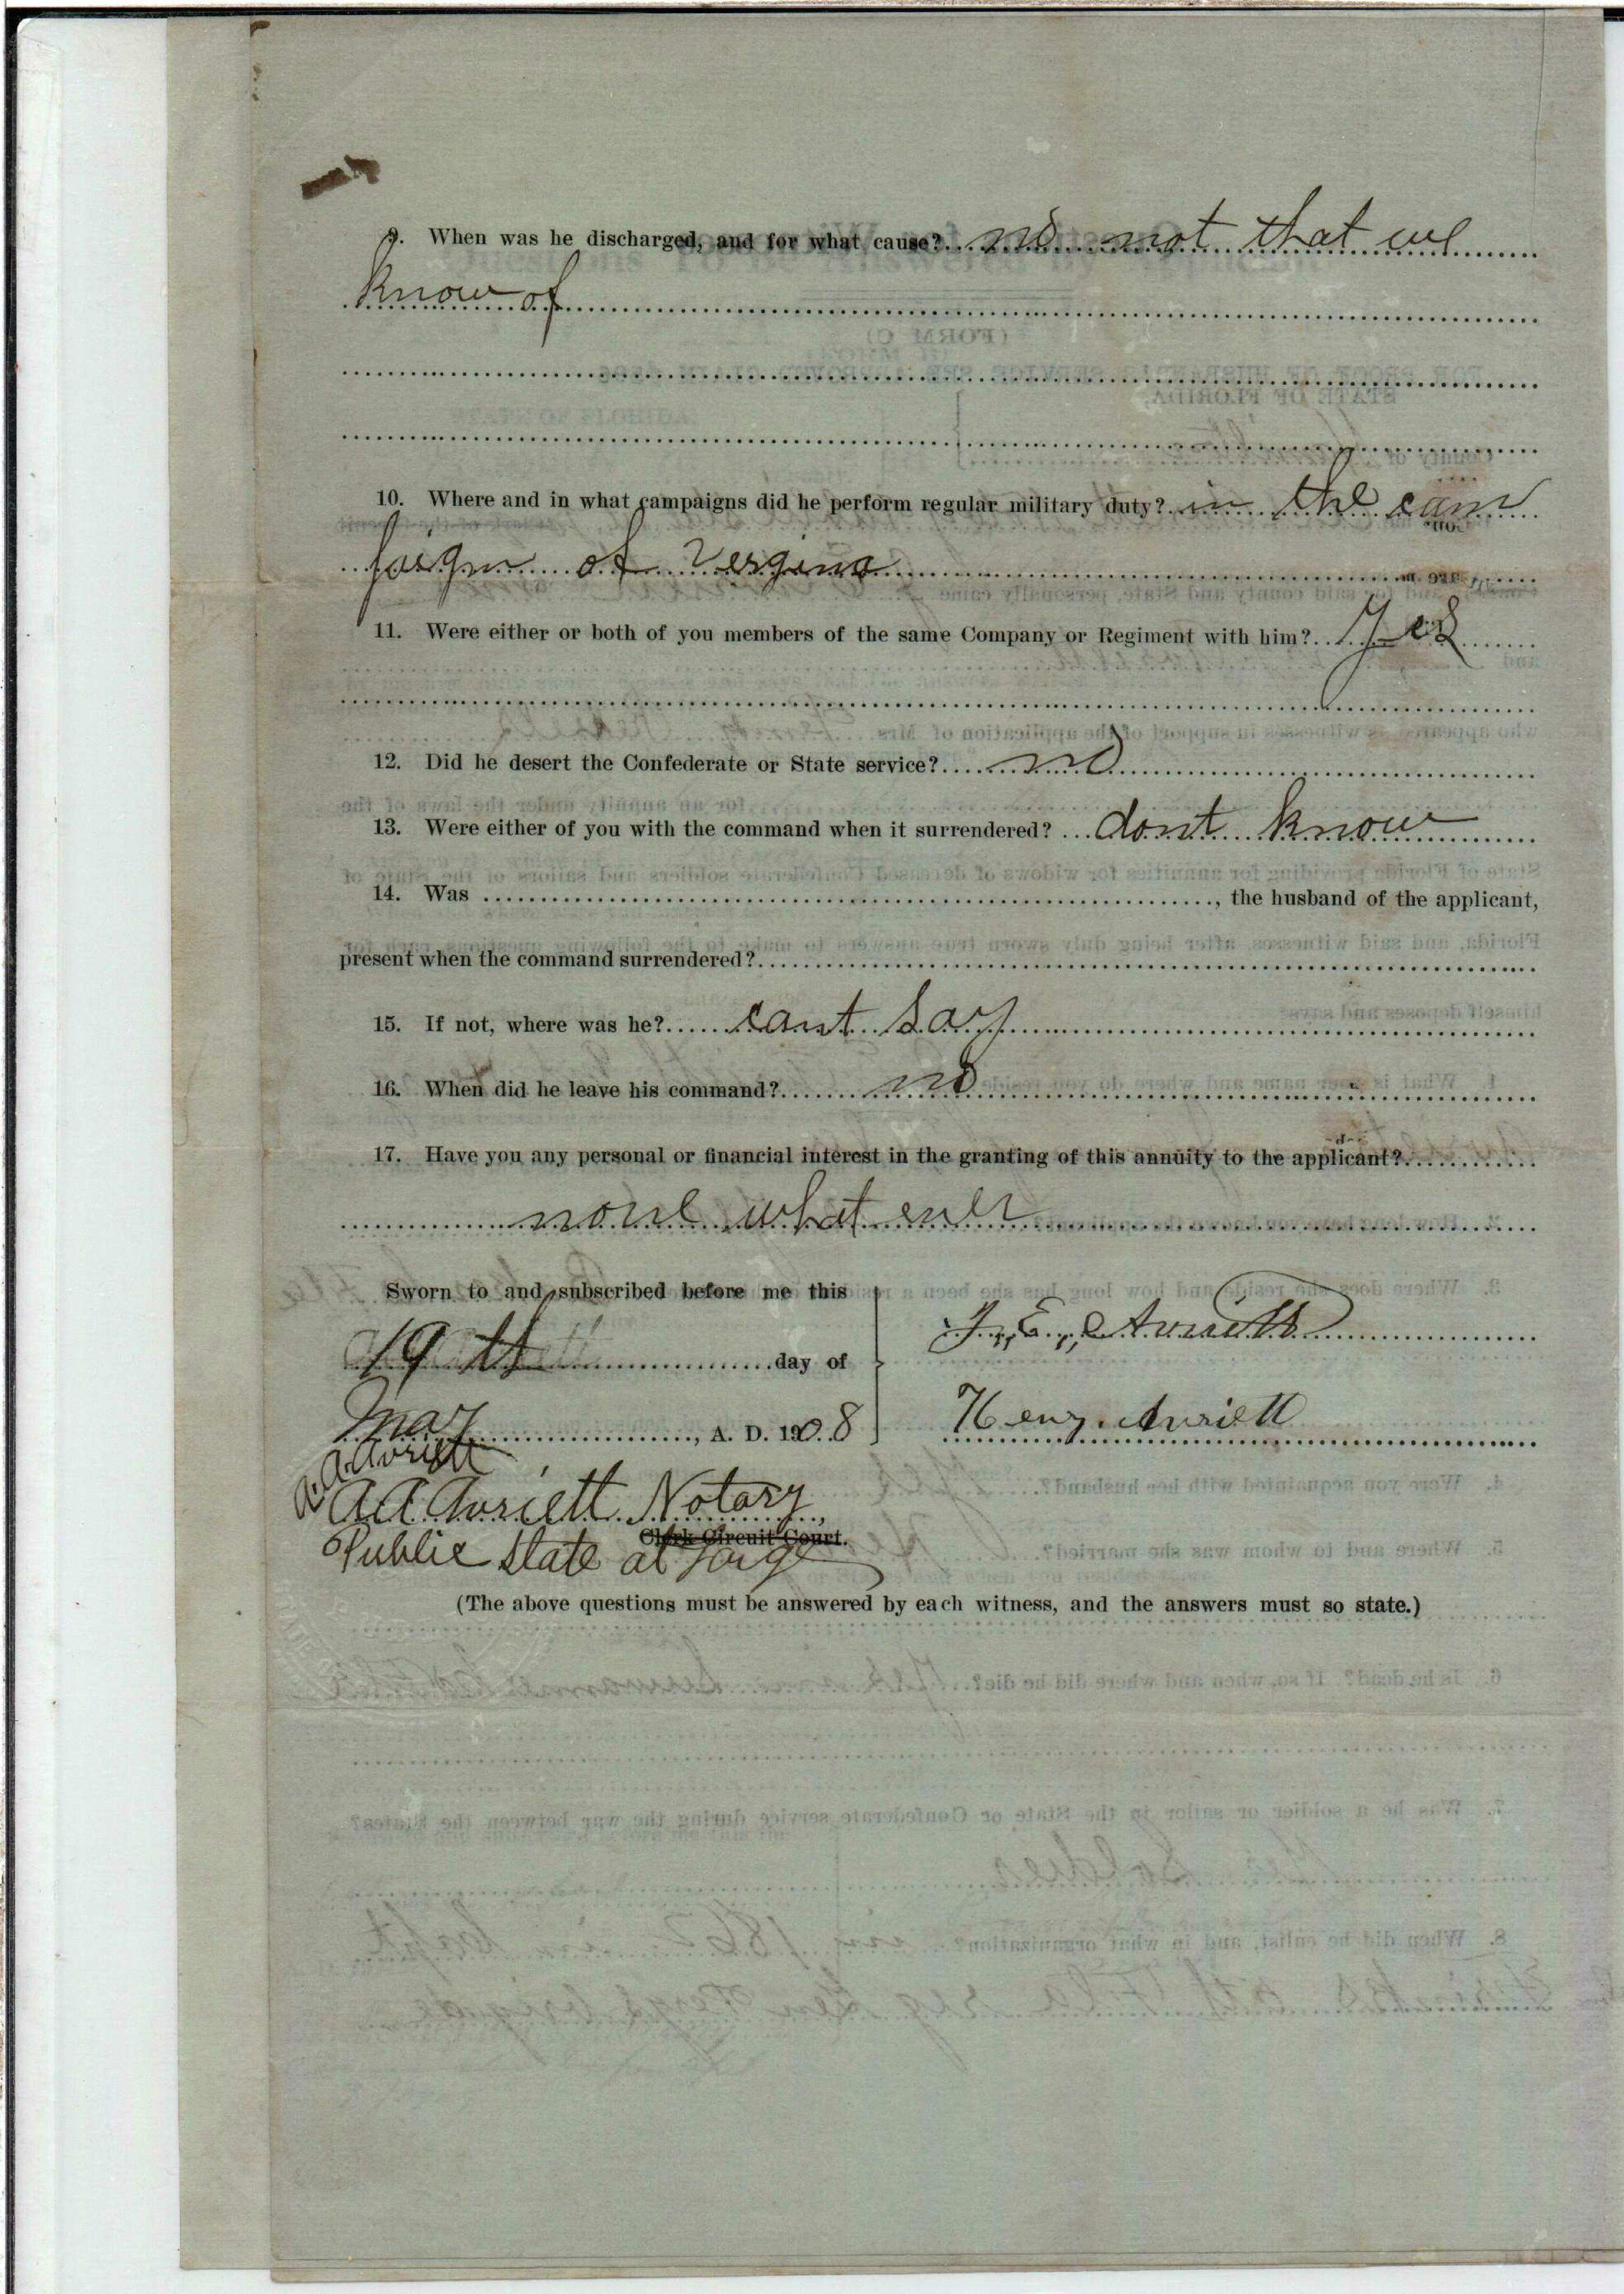 9. When was he discharged, and for what cause? no not that we
know of
10. Where and in what campaigns did he perform regular military duty? in the cam
paign of Vergina
11. Were either or both of you members of the same Company or Regiment with him? Yes
12. Did he desert the Confederate or State service? no
13. Were either of you with the command when it surrendered? dont know
14. Was , the husband of the applicant,
present when the command surrendered?
15. If not, where was he? cant say
16. When did he leave his command? no
17. Have you any personal or financial interest in the granting of this annuity to the applicant?
none what ever
Sworn to and subscribed before me this
19th day of
May, A. D. 1908
Avriett
Heny. Avriett
A.A. Avriett
A A Avriett Notary
Clerk Circuit Court.
Public State at large
(The above questions must be answered by each witness, and the answers must so state.)